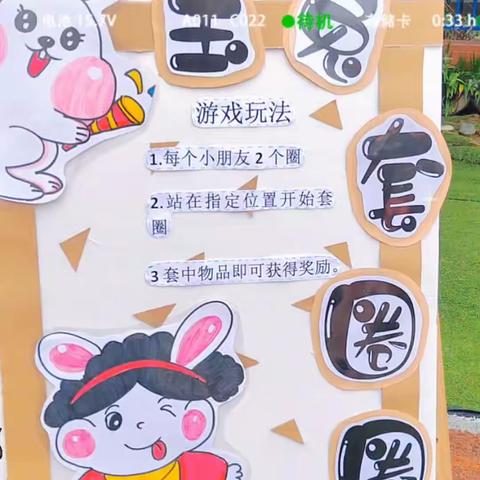 电池 15.7V A011_C022 待机 存储卡 0:33h
游戏玩法
1.每个小朋友2个圈
2.站在指定位置开始套
圈
3套中物品即可获得奖励。
套
圈
圈